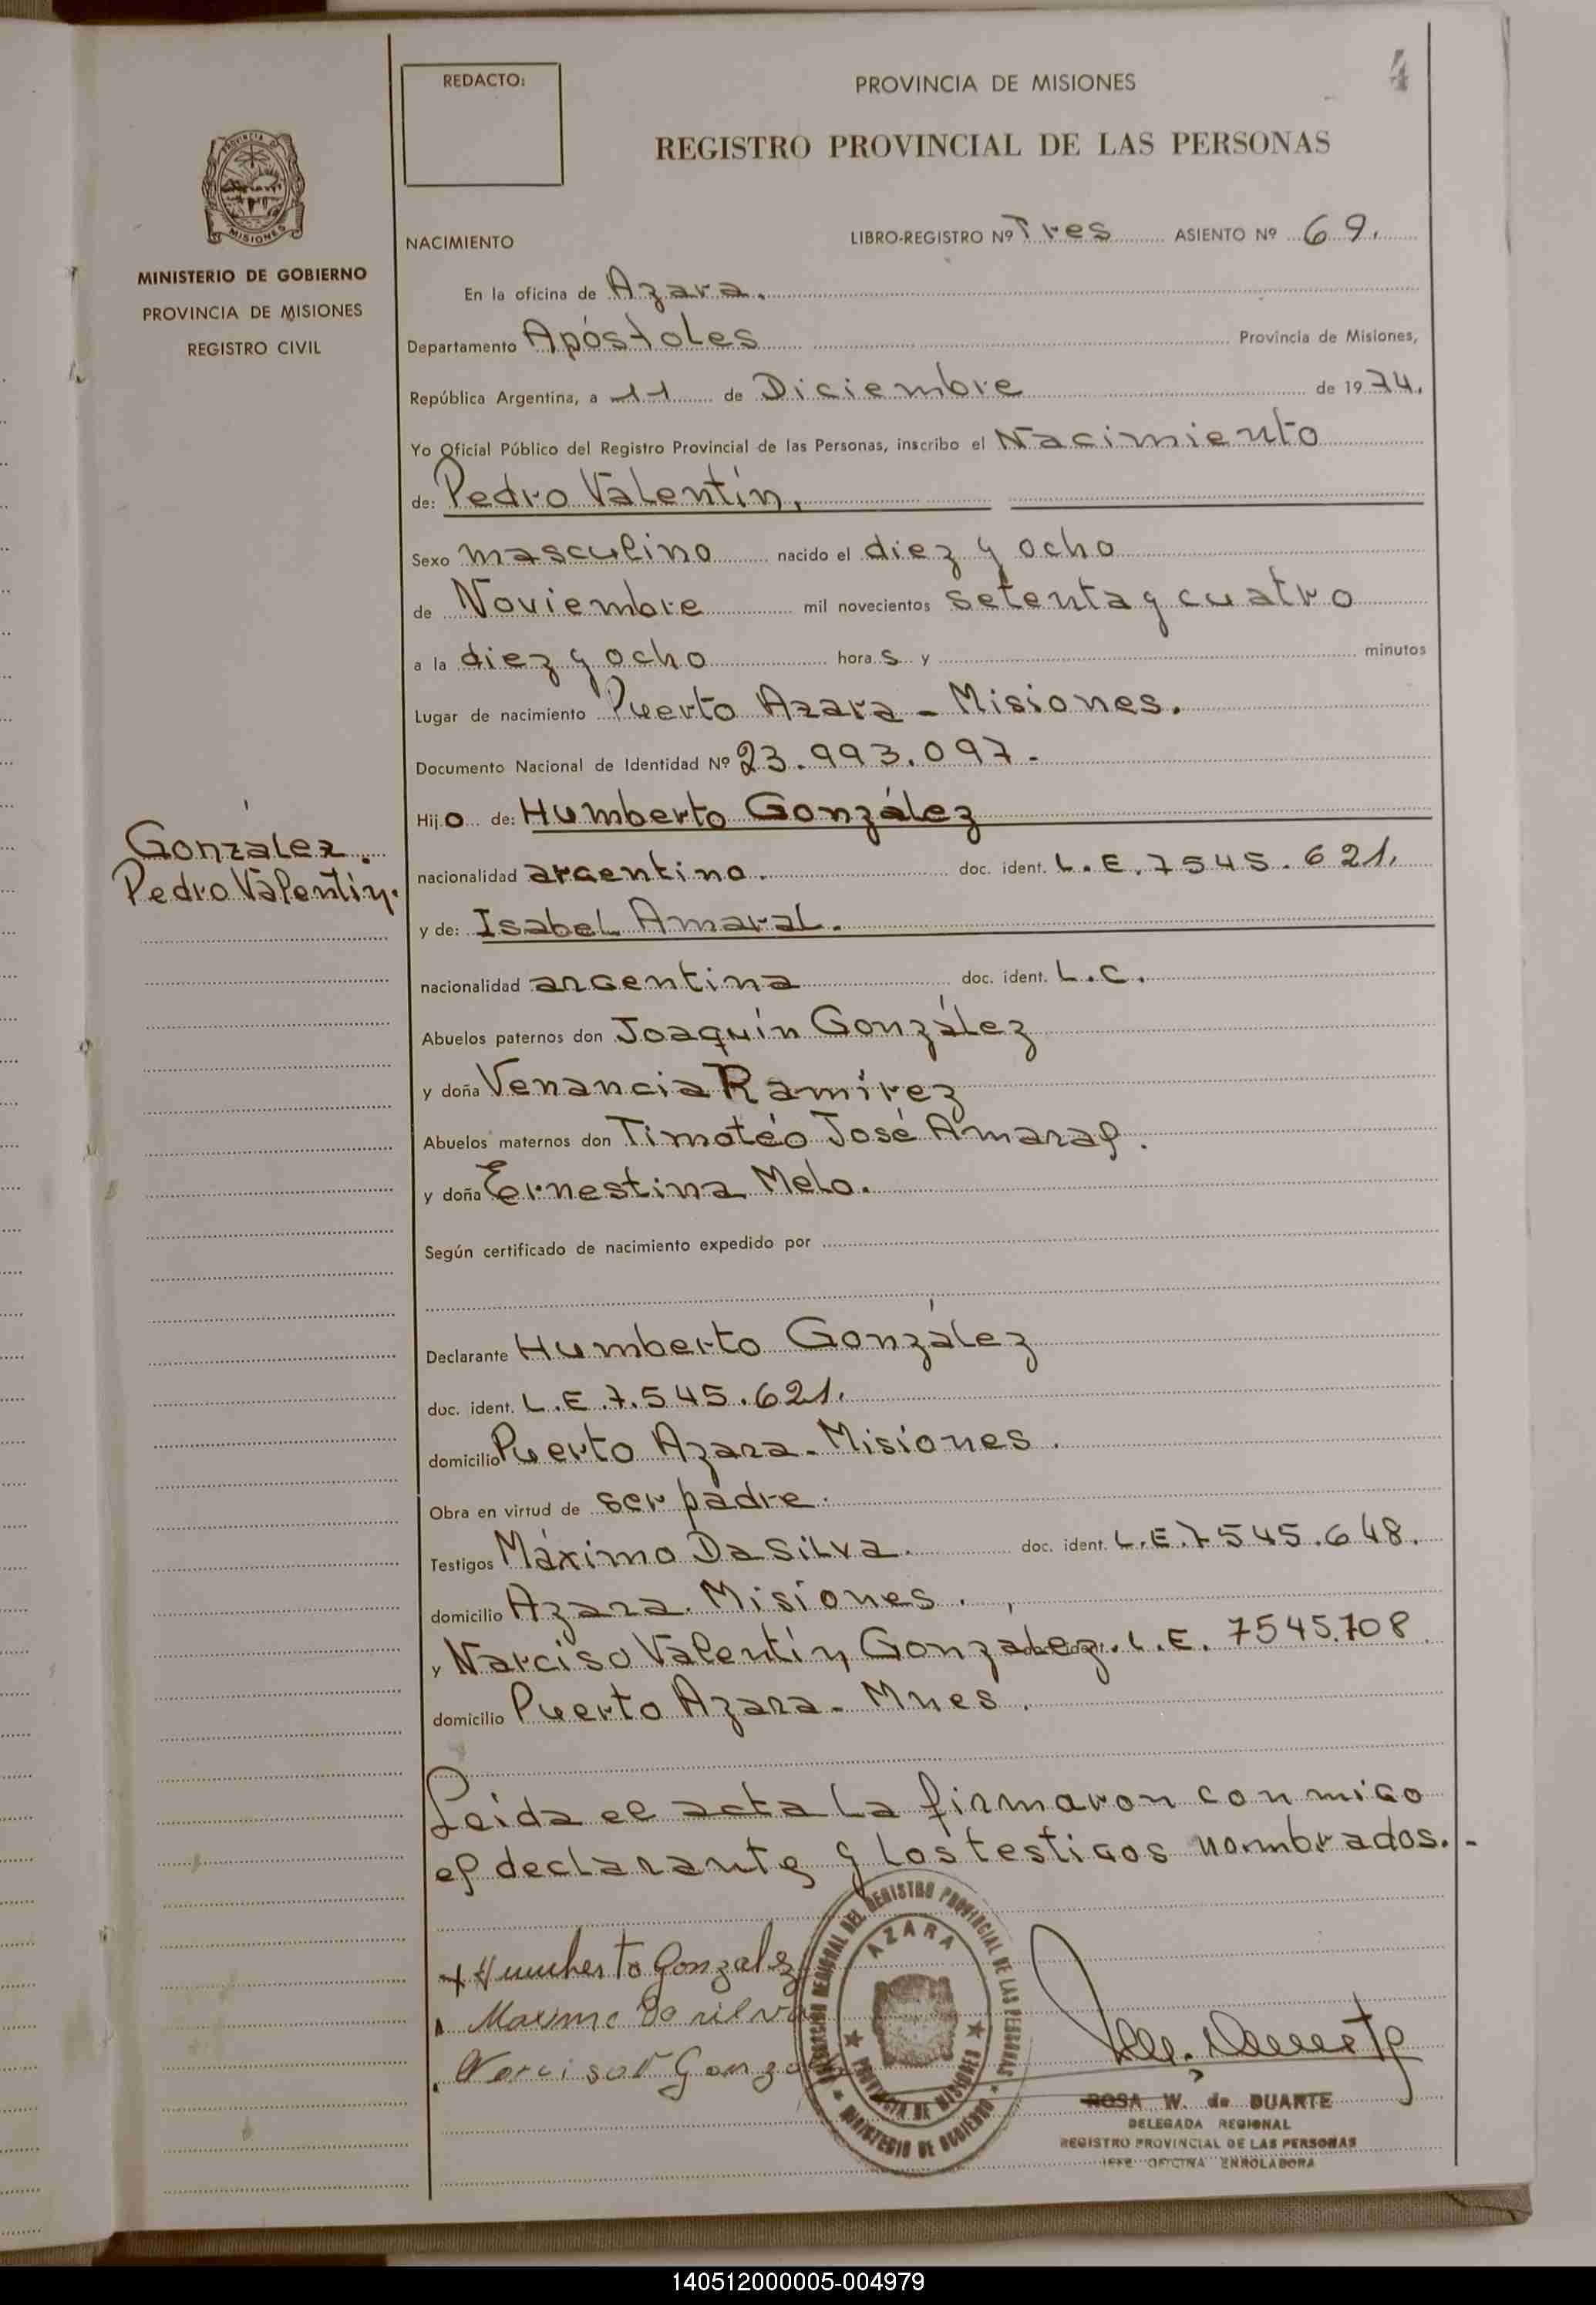 4
REDACTO:
PROVINCIA DE MISIONES
REGISTRO PROVINCIAL DE LAS PERSONAS
PROVINCIA
MISIONES
MINISTERIO DE GOBIERNO
PROVINCIA DE MISIONES
REGISTRO CIVIL
NACIMIENTO LIBRO-REGISTRO Nº Tres ASIENTO Nº 69.
En la oficina de Azara.
Departamento Apóstoles Provincia de Misiones,
República Argentina, a 11 de Diciembre de 1974.
Yo Oficial Público del Registro Provincial de las Personas, inscribo el Nacimiento
de: Pedro Valentín,
Sexo masculino nacido el diez y ocho
de Noviembre mil novecientos setenta y cuatro
a la diez y ocho hora s y minutos
Lugar de nacimiento Puerto Azara - Misiones.
Documento Nacional de Identidad Nº 23.993.097.-
Hijo de: Humberto González
González.
Pedro Valentín.
nacionalidad argentino. doc. ident. L.E. 7545.621.
y de: Isabel Amaral.
nacionalidad argentina doc. ident. L.C.
Abuelos paternos don Joaquín González
y doña Venancia Ramírez
Abuelos maternos don Timotéo José Amaral.
y doña Ernestina Melo.
Según certificado de nacimiento expedido por
Declarante Humberto González
doc. ident. L.E.7.545.621.
domicilio Puerto Azara - Misiones.
Obra en virtud de ser padre.
Testigos Máximo Da Silva. doc. ident. L.E.7545.648.
domicilio Azara. Misiones.
y Narciso Valentín González. L.E. 7545.708
domicilio Puerto Azara - Mnes.
Leída el acta la firmaron conmigo
el declarante y los testigos nombrados.-
Humberto Gonzalez
Maximo Da silva
Narciso V Gonza
DEL REGISTRO PROVINCIAL DE LAS PERSONAS
AZARA
PROVINCIA DE MISIONES
MINISTERIO DE GOBIERNO
ROSA W. de DUARTE
DELEGADA REGIONAL
REGISTRO PROVINCIAL DE LAS PERSONAS
JEFE OFICINA ENROLADORA
140512000005-004979